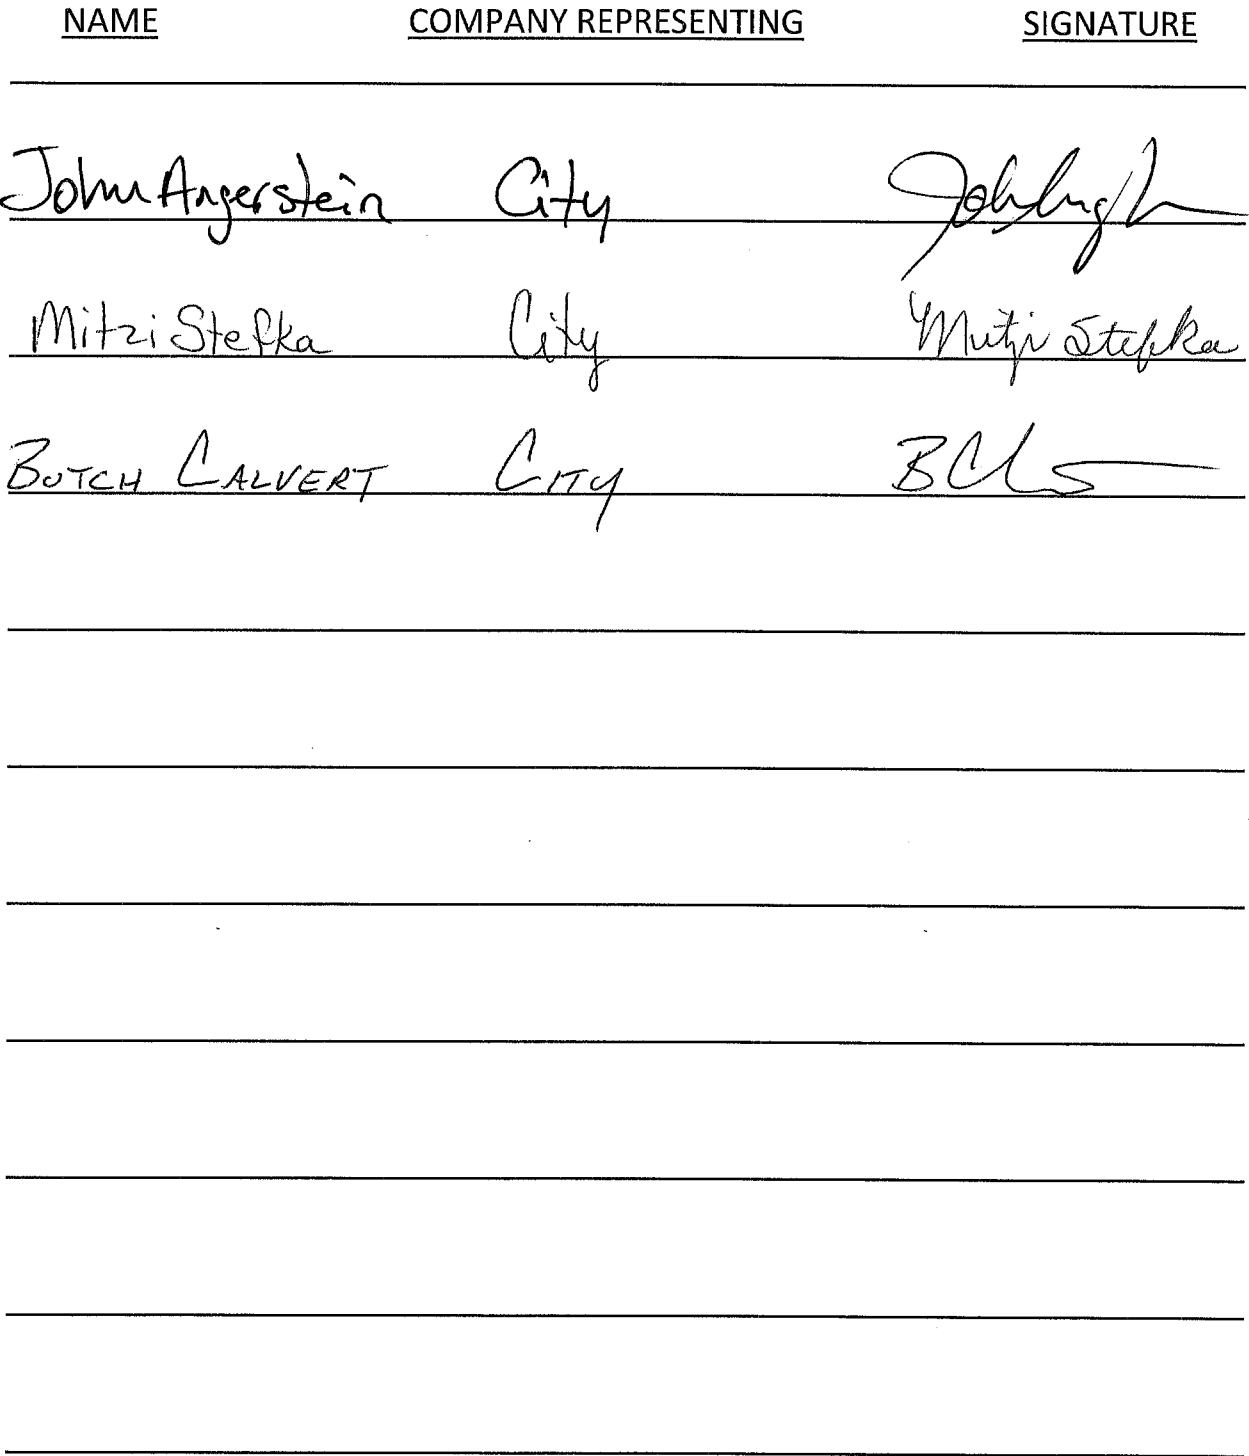 NAME COMPANY REPRESENTING SIGNATURE
John Angerstein City
Mitzi Stefka City Mitzi Stefka
BUTCH CALVERT CITY